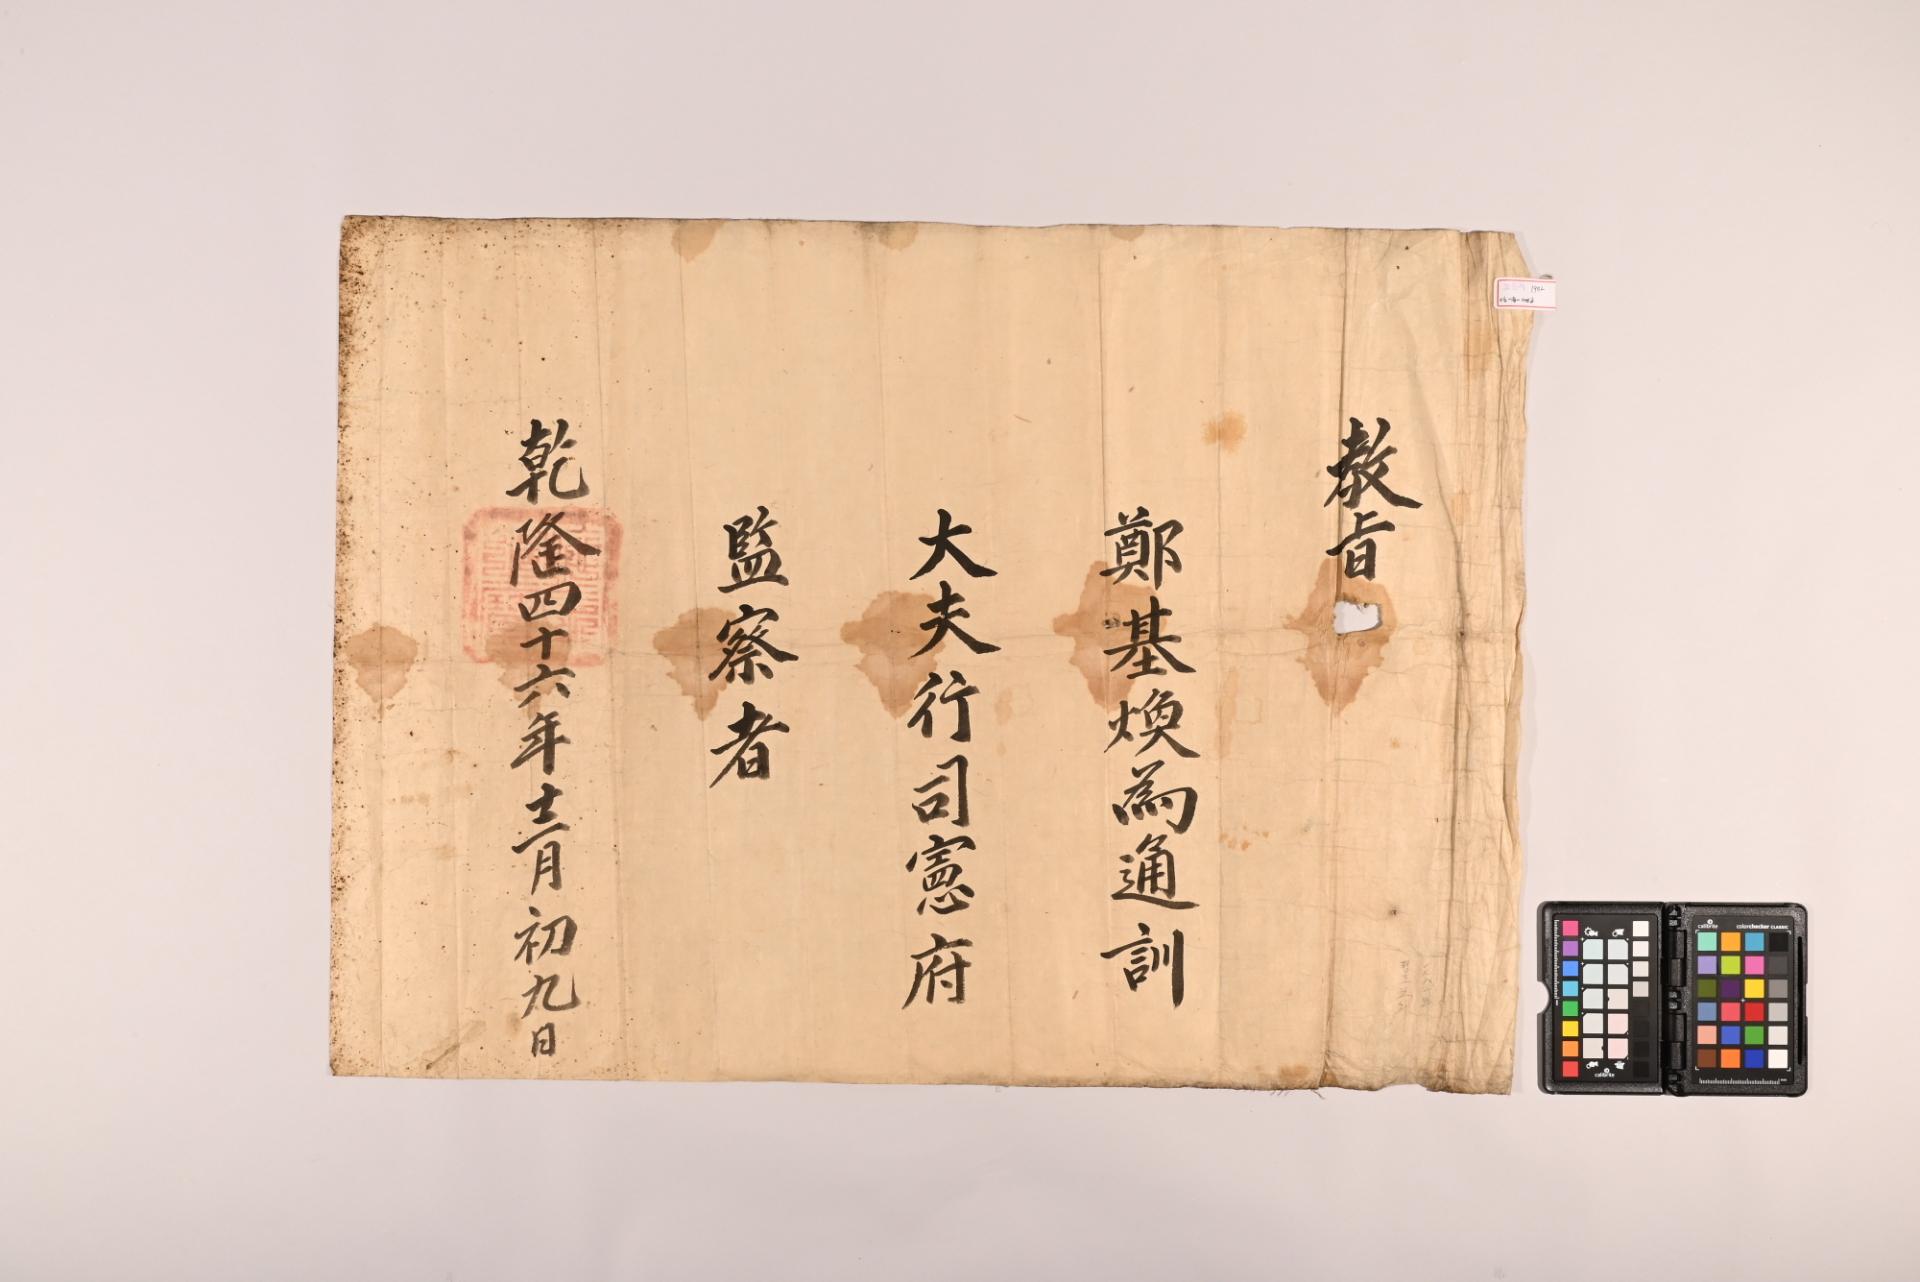 教旨
鄭基煥為通訓
大夫行司憲府
監察者
乾隆四十六年十二月初九日
1902
calibrite
colorchecker CLASSIC
calibrite